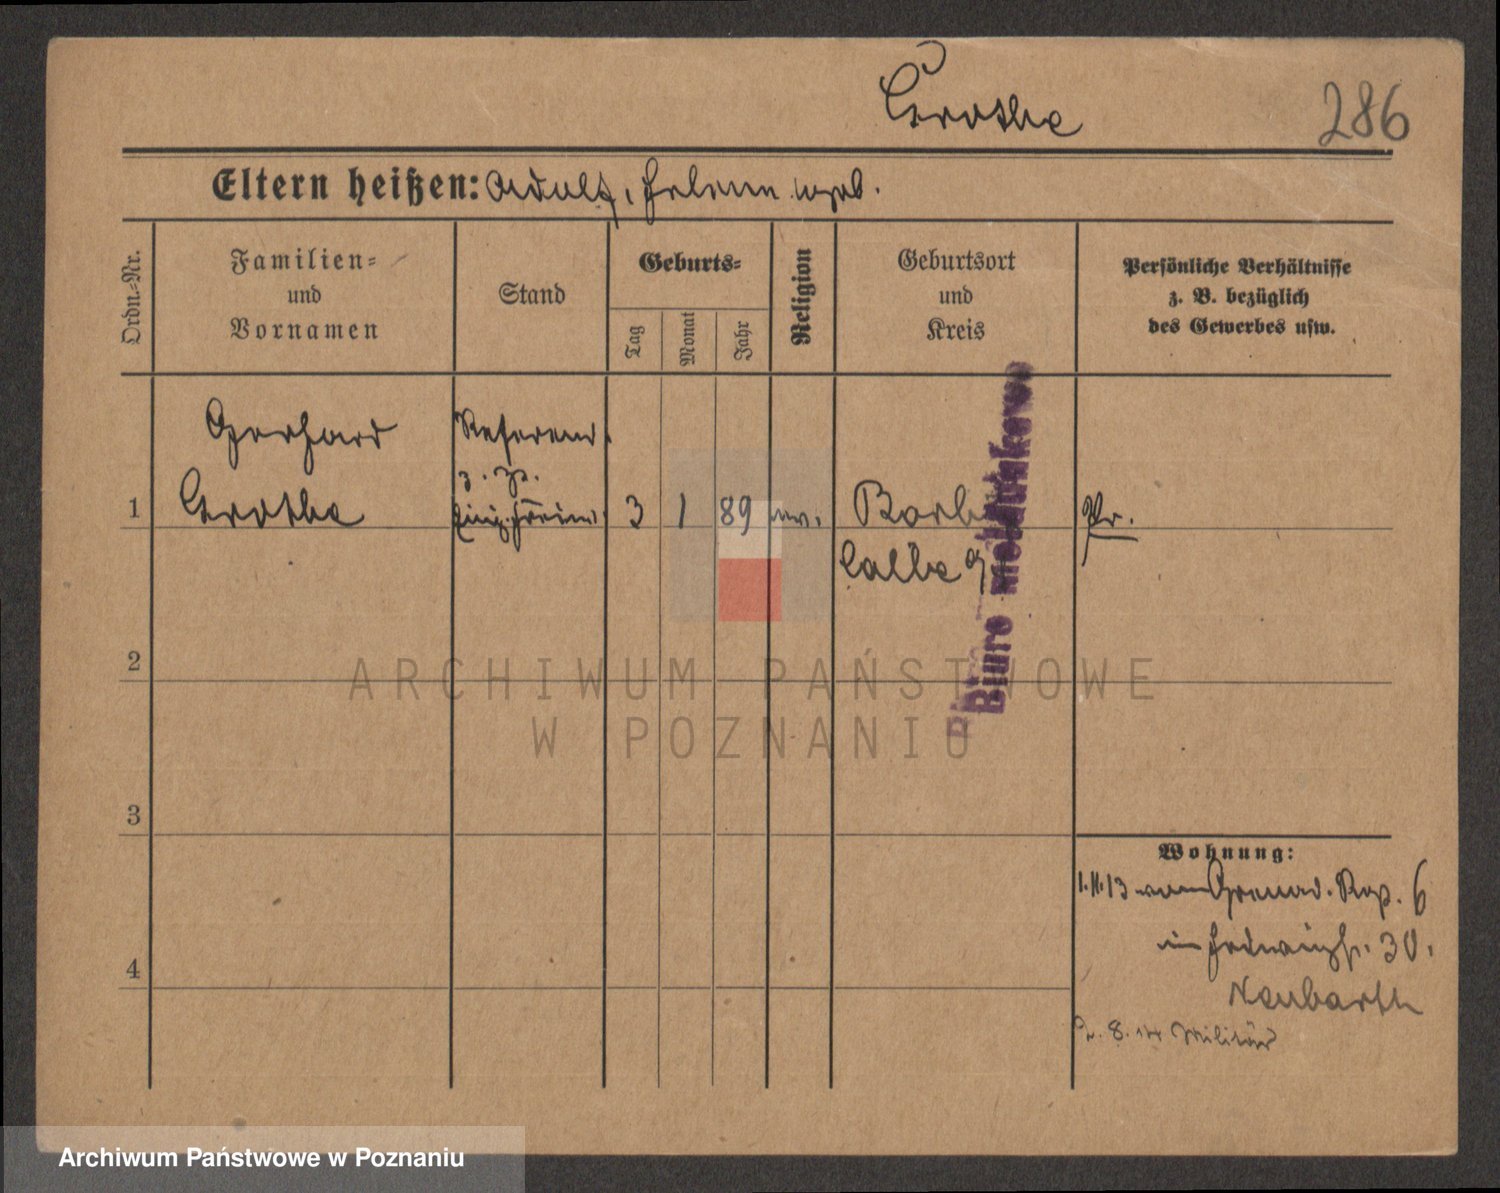 Grothe
286
Eltern heißen: Adolf, Helene geb.
Ordn.-Nr.
Familien-
und
Vornamen
Stand
Geburts-
Tag
Monat
Jahr
Religion
Geburtsort
und
Kreis
Persönliche Verhältnisse
z. B. bezüglich
des Gewerbes usw.
Gerhard
Referend.
z. Zt.
1
Grothe
3
1
89
ev.
Barby
Pr.
Calbe
Biuro meldunkowe
2
3
4
Wohnung:
1.11.13 vom Grenad. Reg. 6
in 30.
Neubarth
2. 8. 14 Militär
ARCHIWUM PAŃSTWOWE
W POZNANIU
Archiwum Państwowe w Poznaniu